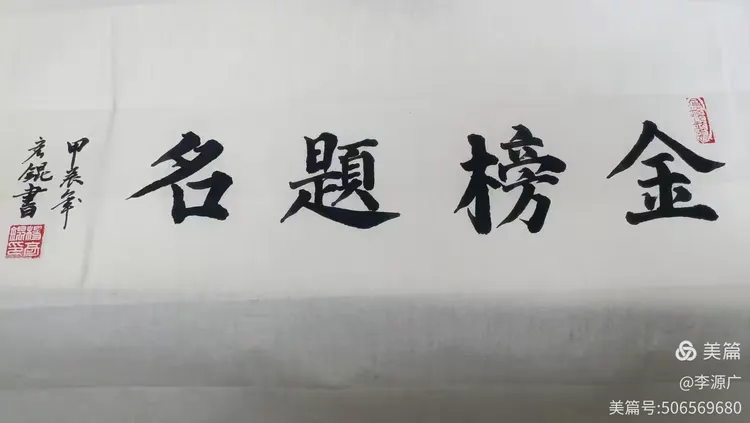 金榜題名
甲辰年
彥錕書
美篇
@李源广
美篇号:506569680